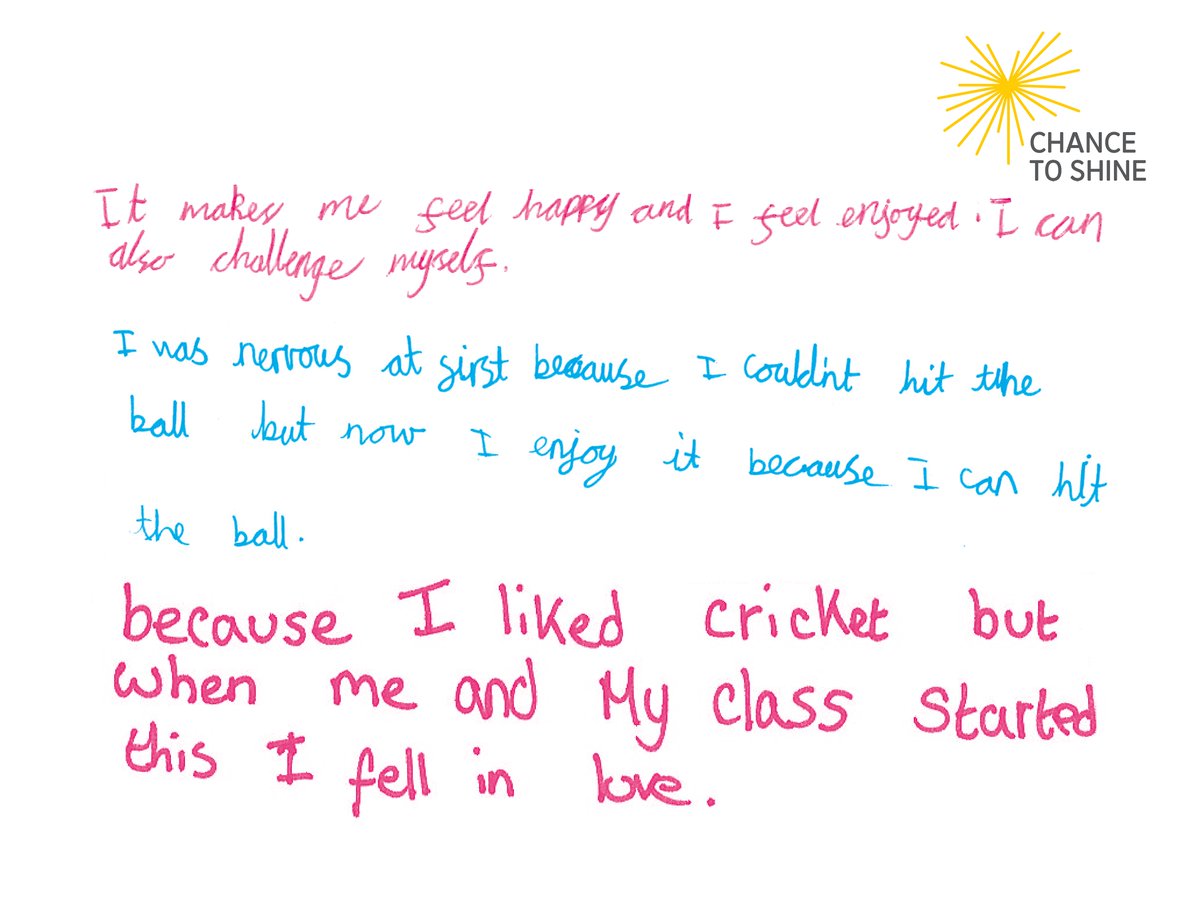 CHANCE
TO SHINE
It makes me feel happy and I feel enjoyed. I can
also challenge myself.
I was nervous at first because I couldn't hit the
ball but now I enjoy it because I can hit
the ball.
because I liked cricket but
when me and My class started
this I fell in love.